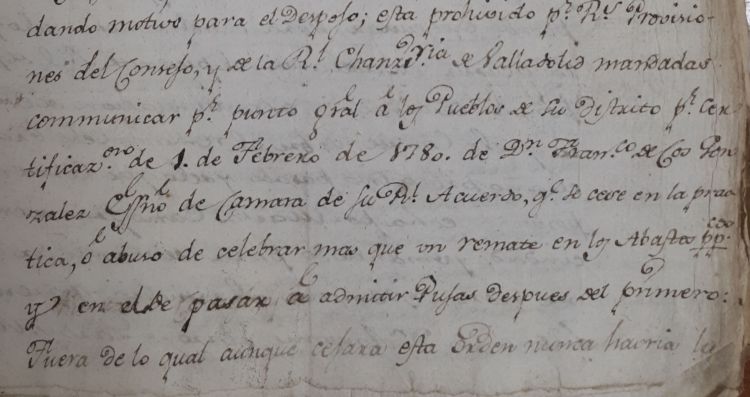 dando motivo para el Despojo; esta prohivido p.r R.s Provisio-
nes del Consejo, y de la R.l Chanz.ria de Valladolid mandadas
communicar p.r punto gral a los Pueblos de su districto p.r Cer-
tificaz.on de 1. de Febrero de 1780. de D.n Fran.co de Cos Gon
zalez Essno de Camara de su R.l Acuerdo, q.e se cese en la prac
tica, o abuso de celebrar mas que un remate en los Abastos pp.cos
y en el de pasar a admitir Pujas despues del primero:
Fuera de lo qual aunque cesara esta Orden nunca havria